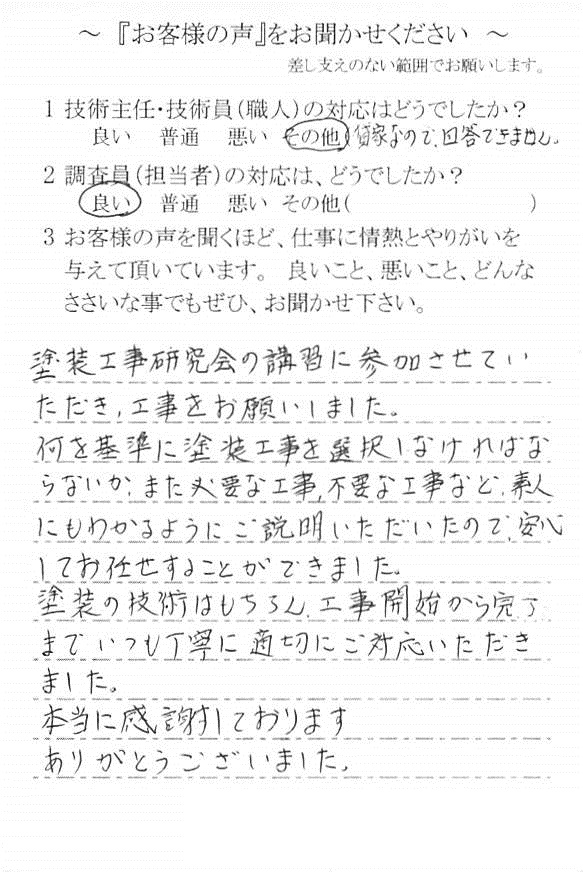 ～『お客様の声』をお聞かせください ～
差し支えのない範囲でお願いします。
1 技術主任・技術員(職人)の対応はどうでしたか?
良い 普通 悪い その他(貸家なので、回答できません。
2 調査員(担当者)の対応は、どうでしたか?
良い 普通 悪い その他( )
3 お客様の声を聞くほど、仕事に情熱とやりがいを
与えて頂いています。 良いこと、悪いこと、どんな
ささいな事でもぜひ、お聞かせ下さい。
塗装工事研究会の講習に参加させてい
ただき、工事をお願いしました。
何を基準に塗装工事を選択しなければな
らないか、また必要な工事、不要な工事など、素人
にもわかるようにご説明いただいたので、安心
してお任せすることができました。
塗装の技術はもちろん、工事開始から完了
までいつも丁寧に適切にご対応いただき
ました。
本当に感謝しております
ありがとうございました。